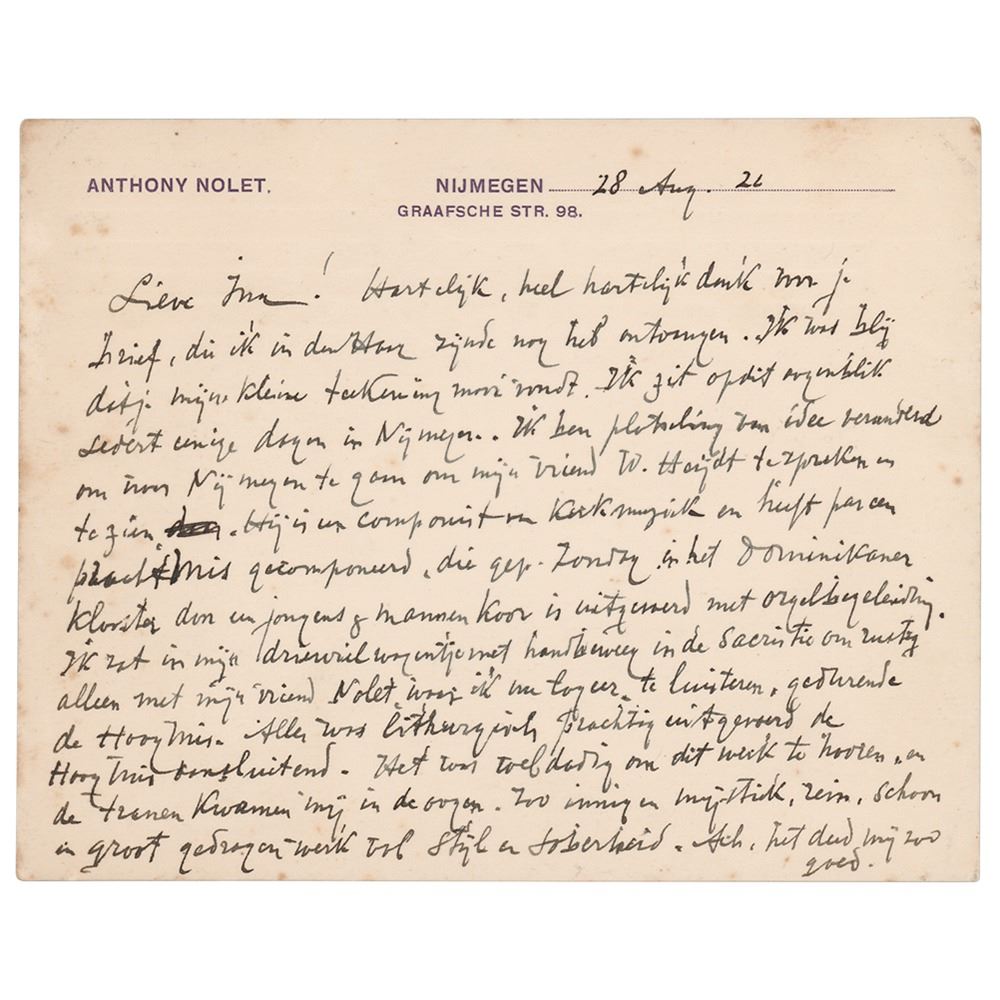 ANTHONY NOLET.
NIJMEGEN 28 Aug. 21
GRAAFSCHE STR. 98.
Lieve ! Hartelijk, heel hartelijk dank voor je
brief, die ik in den Haag zijnde nog heb ontvangen. Ik was blij
dat je mijn kleine teekening mooi vondt. Ik zit op dit oogenblik
sedert eenige dagen in Nijmegen. Ik ben plotseling van idee veranderd
om naar Nijmegen te gaan om mijn vriend W. Heijdt te spreken en
te zien. Hij is een componist van Kerkmuziek en heeft pas een
pracht Mis gecomponeerd, die gep. Zondag in het Dominikaner
klooster door een jongens & mannen koor is uitgevoerd met orgelbegeleiding.
Ik zat in mijn driewielwagentje met handbeweeg in de Sacristie om rustig
alleen met mijn vriend Nolet, waar ik nu logeer, te luisteren, gedurende
de Hoogmis. Alles was lithurgisch prachtig uitgevoerd de
Hoog Mis aansluitend. Het was weldadig om dit werk te hooren, en
de tranen kwamen mij in de oogen. Zoo innig en mystiek, rein, schoon
en groot gedragen werk vol Stijl en Soberheid. Ach, het deed mij zoo
goed.